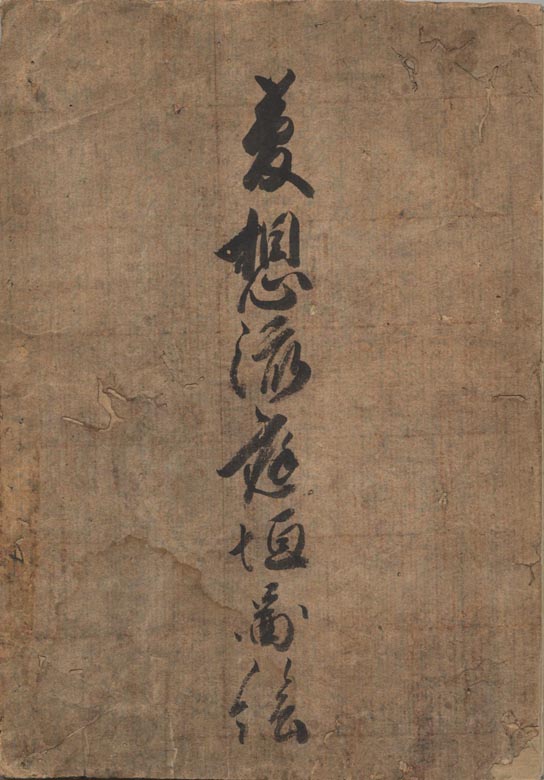 夢想流庭垣圖絵